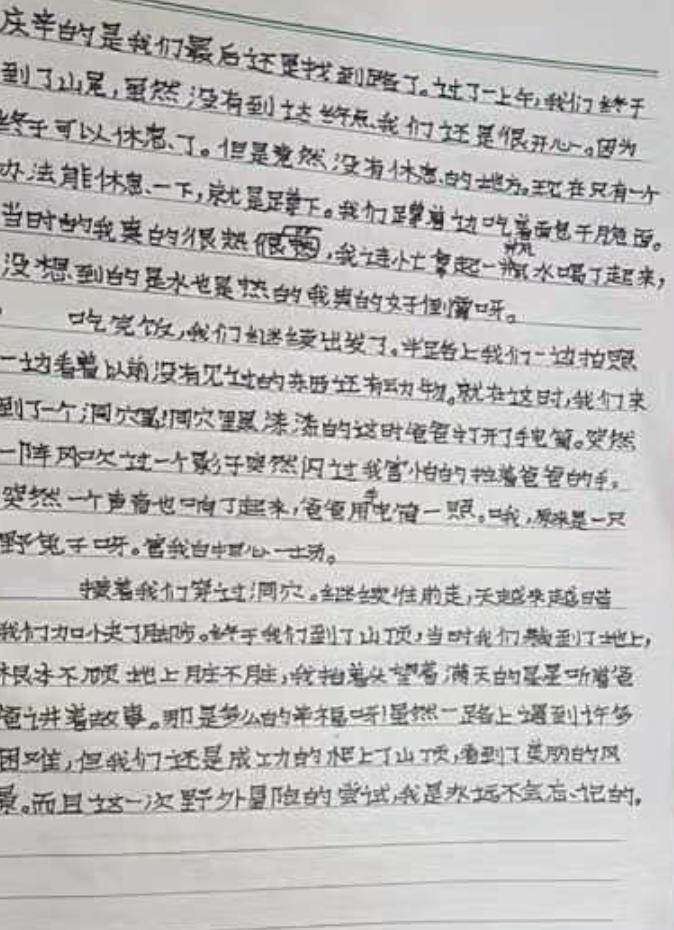 庆幸的是我们最后还是找到路了。过了一上午,我们终于
到了山尾,虽然没有到达终点,我们还是很开心。因为
终于可以休息了。但是竟然没有休息的地方。现在只有一个
办法能休息一下,就是蹲下。我们蹲着边吃着面包干脆面。
当时的我真的很热很,我连忙拿起一瓶水喝了起来,
没想到的是水也是热的我真的好倒霉呀。
吃完饭,我们继续出发了。半路上我们一边拍照
一边看着以前没有见过的东西还有动物。就在这时,我们来
到了一个洞穴里洞穴里黑漆漆的这时爸爸打开了手电筒。突然
一阵风吹过一个影子突然闪过我害怕的拉着爸爸的手。
突然一个声音也响了起来,爸爸用手电筒一照。哦,原来是一只
野兔子呀。害我白担心一场。
接着我们穿过洞穴。继续往前走,天越来越暗
我们加快了脚步。终于我们到了山顶,当时我们躺到了地上,
根本不顾地上脏不脏,我抬着头望着满天的星星听着爸
爸讲着故事。那是多么的幸福呀!虽然一路上遇到许多
困难,但我们还是成功的爬上了山顶,看到了美丽的风
景。而且这一次野外冒险的尝试,我是永远不会忘记的。